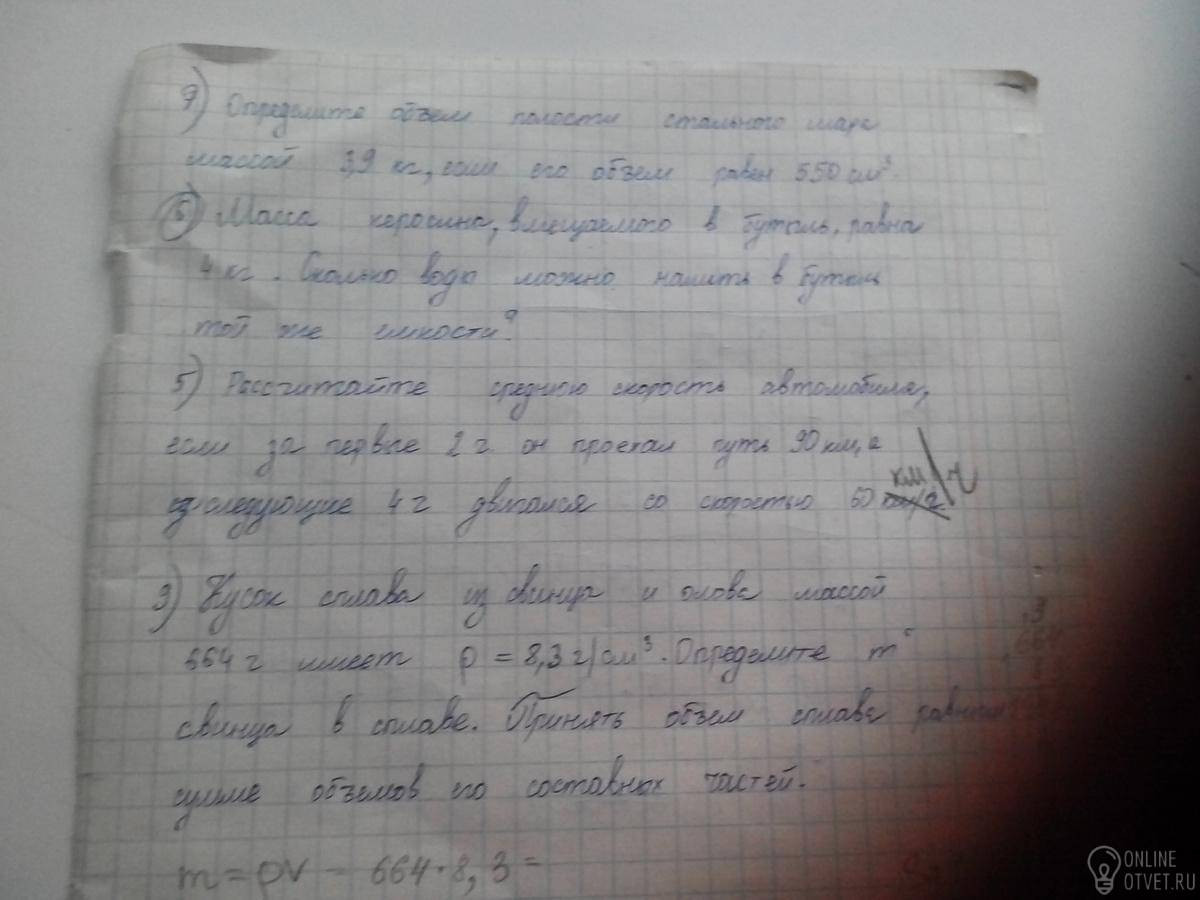 7) Определите объем полости стального шара
массой 3,9 кг, если его объем равен 550 см³.
6) Масса керосина, вмещаемого в бутыль, равна
4 кг. Сколько воды можно налить в бутыль
той же емкости?
5) Рассчитайте среднюю скорость автомобиля,
если за первые 2 ч он проехал путь 90 км, а
следующие 4 ч двигался со скоростью 60 км/ч
9) Кусок сплава из свинца и олова массой
664 г имеет ρ = 8,3 г/см³. Определите m
свинца в сплаве. Принять объем сплава равным
сумме объемов его составных частей.
m = ρV = 664 · 8,3 =
ONLINE
OTVET.RU